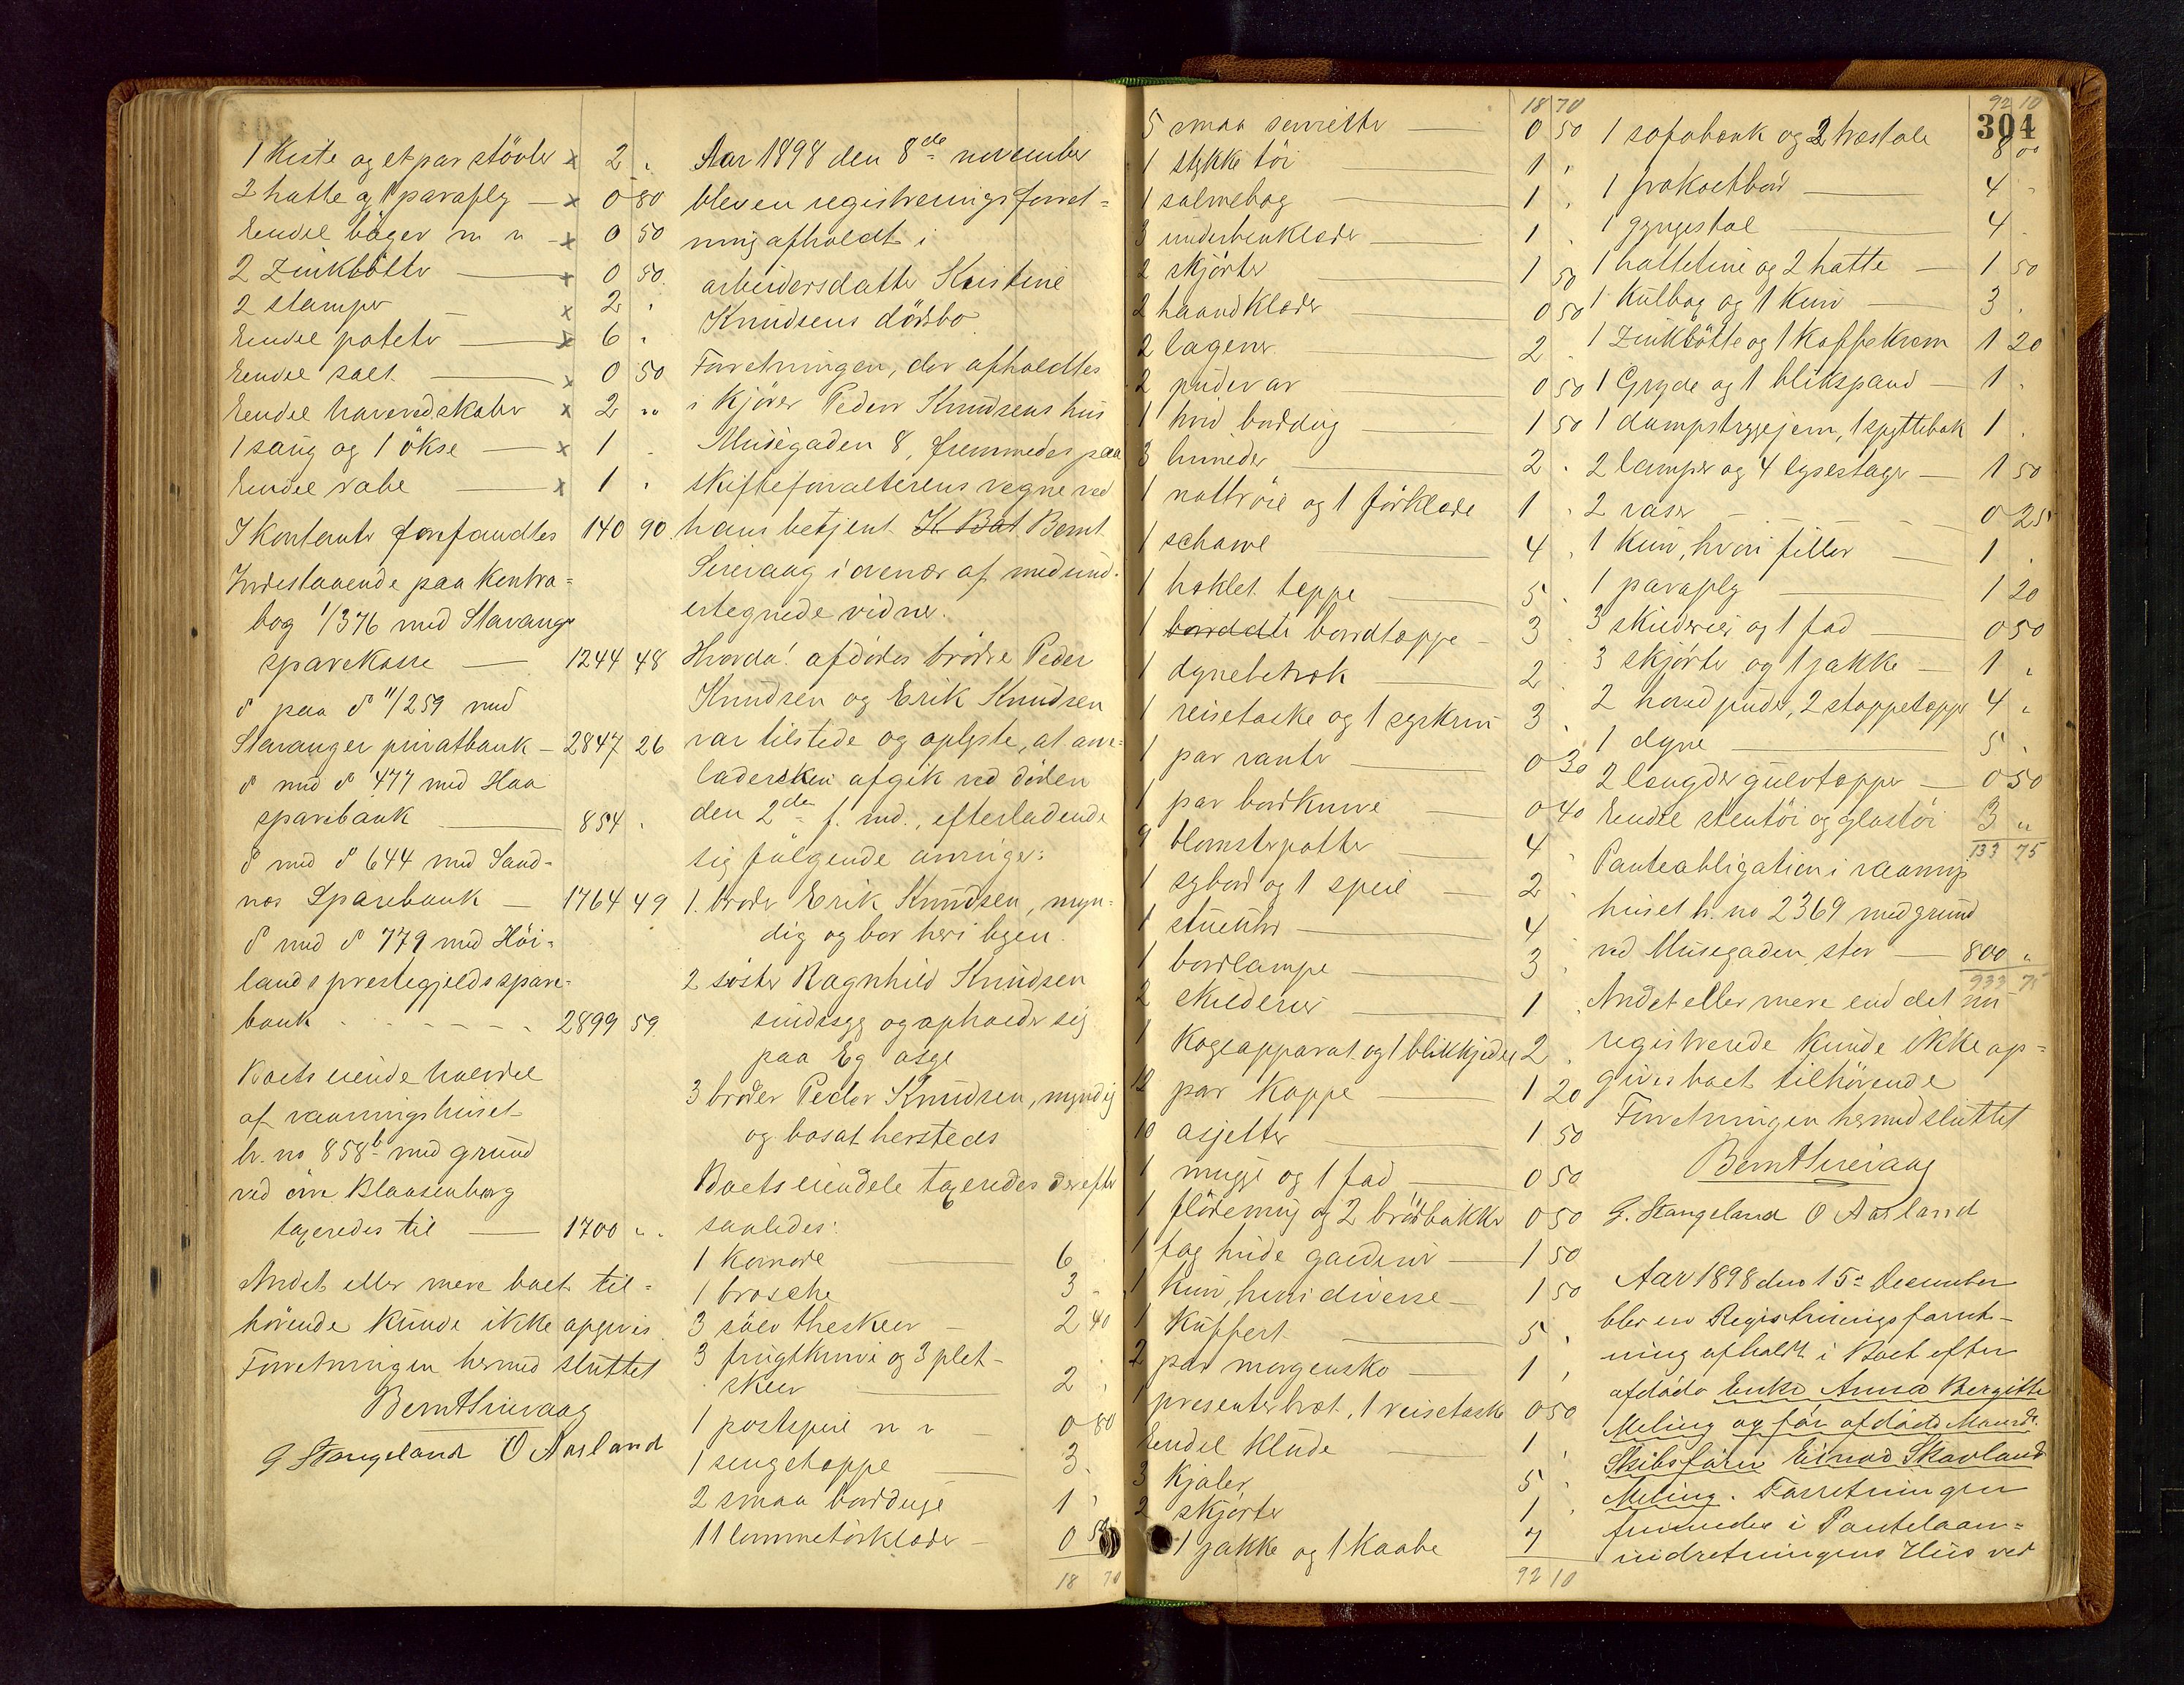 1 Kiste og et par stövler x 2 "
2 hatte og 1 paraply — x 0 80
Endel böger m n x 0 50
2 Zinkbötter — x 0 50
2 stamper — x 2 "
Endel poteter — x 6 "
Endel salt — x 0 50
Endel haveredskaber x 2 "
1 saug og 1 ökse — x 1 "
Endel rabe — x 1 "
I Kontanter forefandtes 140 90
Indestaaende paa Kontra=
bog 1/376 med Stavanger
sparekasse — 1244 48
do paa do 11/259 med
Stavanger privatbank — 2847 26
do med do 477 med Haa
sparebank — 854 "
do med do 644 med Sand=
nes Sparebank — 1764 49
do med do 779 med Höi=
lands prestegjelds spare=
bank - - - - - 2899 59
Boets eiende halvdel
af vaaningshuset
br. no 858b med grund
ved övre Blaasenborg
taxeredes til — 1700 "
Andet eller mere boet til=
hörende kunde ikke opgives.
Forretningen hermed sluttet
Bernt Sirevaag
G Stangeland O Aarland
Aar 1898 den 8de november
blev en registreringsforret=
ning afholdt i
arbeidersdatter Kristine
Knudsens dödsbo.
Forretningen, der afholdtes
i Kjörer Peder Knudsens hus
Musègaden 8, fremmedes paa
skifteforvalterens vegne ved
hans betjent K Bat Bernt
Sirevaag i overvær af medund=
ertegnede vidner.
Hvorda! afdödes brödre Peder
Knudsen og Erik Knudsen
var tilstede og oplyste, at arve=
ladersken afgik ved döden
den 2den f. md., efterladende
sig fölgende arvinger:
1. broder Erik Knudsen, myn=
dig og bor her i byen.
2 söster Ragnhild Knudsen
sindssyg og opholder sig
paa Eg asyl
3 broder Peder Knudsen, myndig
og bosat hersteds
Boets eiendele taxeredes derefter
saaledes:
1 Komode — 6
1 brosche 3 "
3 sölv theskeer — 2 40
3 frugtknive og 3 plet-
skeer — 2 "
1 postspeil m n — 0 80
1 sengetæppe — 3 "
2 smaa borduge 1 "
11 lommetörklæder — 0 50
18 70
18 70
5 smaa servietter — 0 50
1 stykke töi 1 "
1 salmebog — 1 "
3 underbenklæder — 1 "
2 skjörter — 1 50
2 haandklæder 0 50
2 lagener — 2 "
2 pudevar — 0 50
1 hvid borddug — 1 50
3 linneder — 2 "
1 nattröie og 1 forklæde 1 "
1 schawl — 4 "
1 hæklet teppe — 5 "
1 bordtæppe — 3 "
1 dynebetræk — 2 "
1 reisetaske og 1 syskrin 3 "
1 par vanter — 0 30
1 par bordknive — 0 40
9 blomsterpotter — 4 "
1 sybord og 1 speil — 2 "
1 stueuhr — 4 "
1 bordlampe — 3 "
2 skilderier — 1 "
1 Kogeapparat og 1 blikkjedel 2 "
12 par Koppe — 1 20
10 asjetter — 1 50
1 mugge og 1 fad — 0 50
1 flödemug og 2 brödbakker 0 50
1 fag hvide gardiner — 1 50
1 kurv, hvori diverse — 1 50
1 Kuffert — 5 "
2 par morgensko — 1 "
1 presenterbræt, 1 reisetaske 0 50
Endel klude — 1 "
3 Kjoler 5 "
2 skjörter 1 "
1 jakke og 1 Kaabe 7
92 10
92 10
304
1 sofabænk og 2 træstole 8 00
1 frokostbord — 4 "
1 gyngestol — 4 "
1 hatteline og 2 hatte — 1 50
1 Kulbox og 1 Kurv — 3 "
1 Zinkbötte og 1 Kaffekværn 1 20
1 Gryde og 1 blikspand — 1 "
1 dampstrygejern, 1 spyttebak 1 "
2 lamper og 4 lysestager — 1 50
2 vaser — 0 25
1 Kurv, hvori filler — 1 "
1 paraply — 1 20
3 skilderier og 1 fad — 0 50
3 skjörter og 1 jakke — 1 "
2 hovedpuder, 2 stoppetæpper 4 "
1 dyne — 5 "
2 længder gulvtæpper — 0 50
Endel stentöi og glastöi 3 "
133 75
Panteobligation i vaanings
huset br. no 2369 med grund
ved Musegaden, stor — 800 "
933 75
Andet eller mere end det nu
registrerede kunde ikke op=
gives boet tilhörende
Forretningen hermed sluttet
Bernt Sirevaag
G. Stangeland O Aarland
Aar 1898 den 15de December
blev en Registreringsforret-
ning afholdt i Boet efter
afdöde Enke Anna Bergitte
Meling og för afdöde Mand
Skibsförer Einad Skavland
Meling. Forretningen
fremmedes i Pantelaan=
indretningens Hus ved